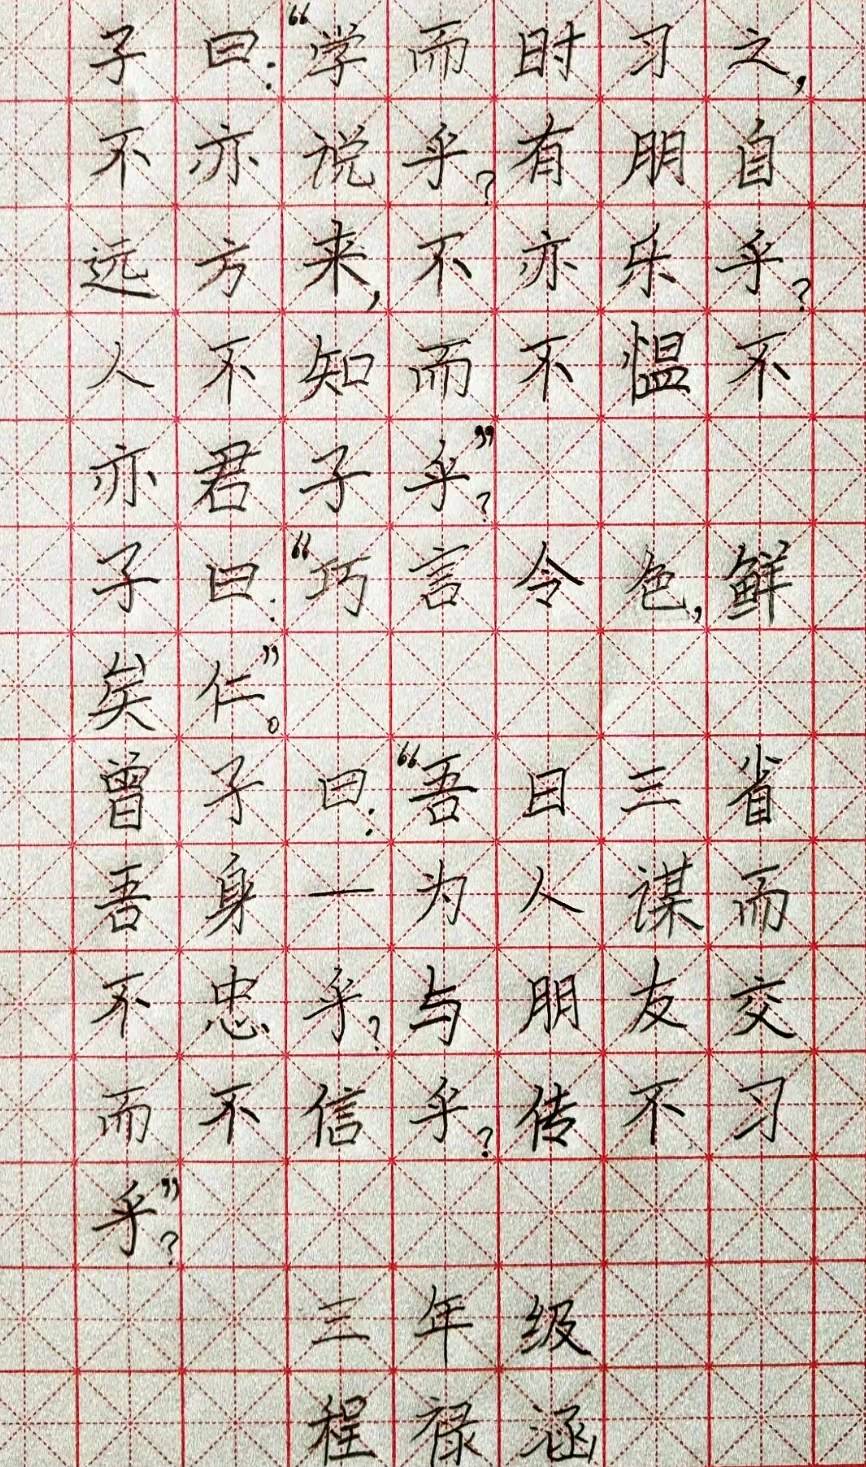 子曰：“学而时习之，
不亦说乎？有朋自
远方来，不亦乐乎？
人不知而不愠不
亦君子乎？”
子曰：“巧言令色，鲜
矣仁。”
曾子曰：“吾日三省
吾身一为人谋而
不忠乎？与朋友交
而不信乎？传不习
乎？”
三年级
程禄涵